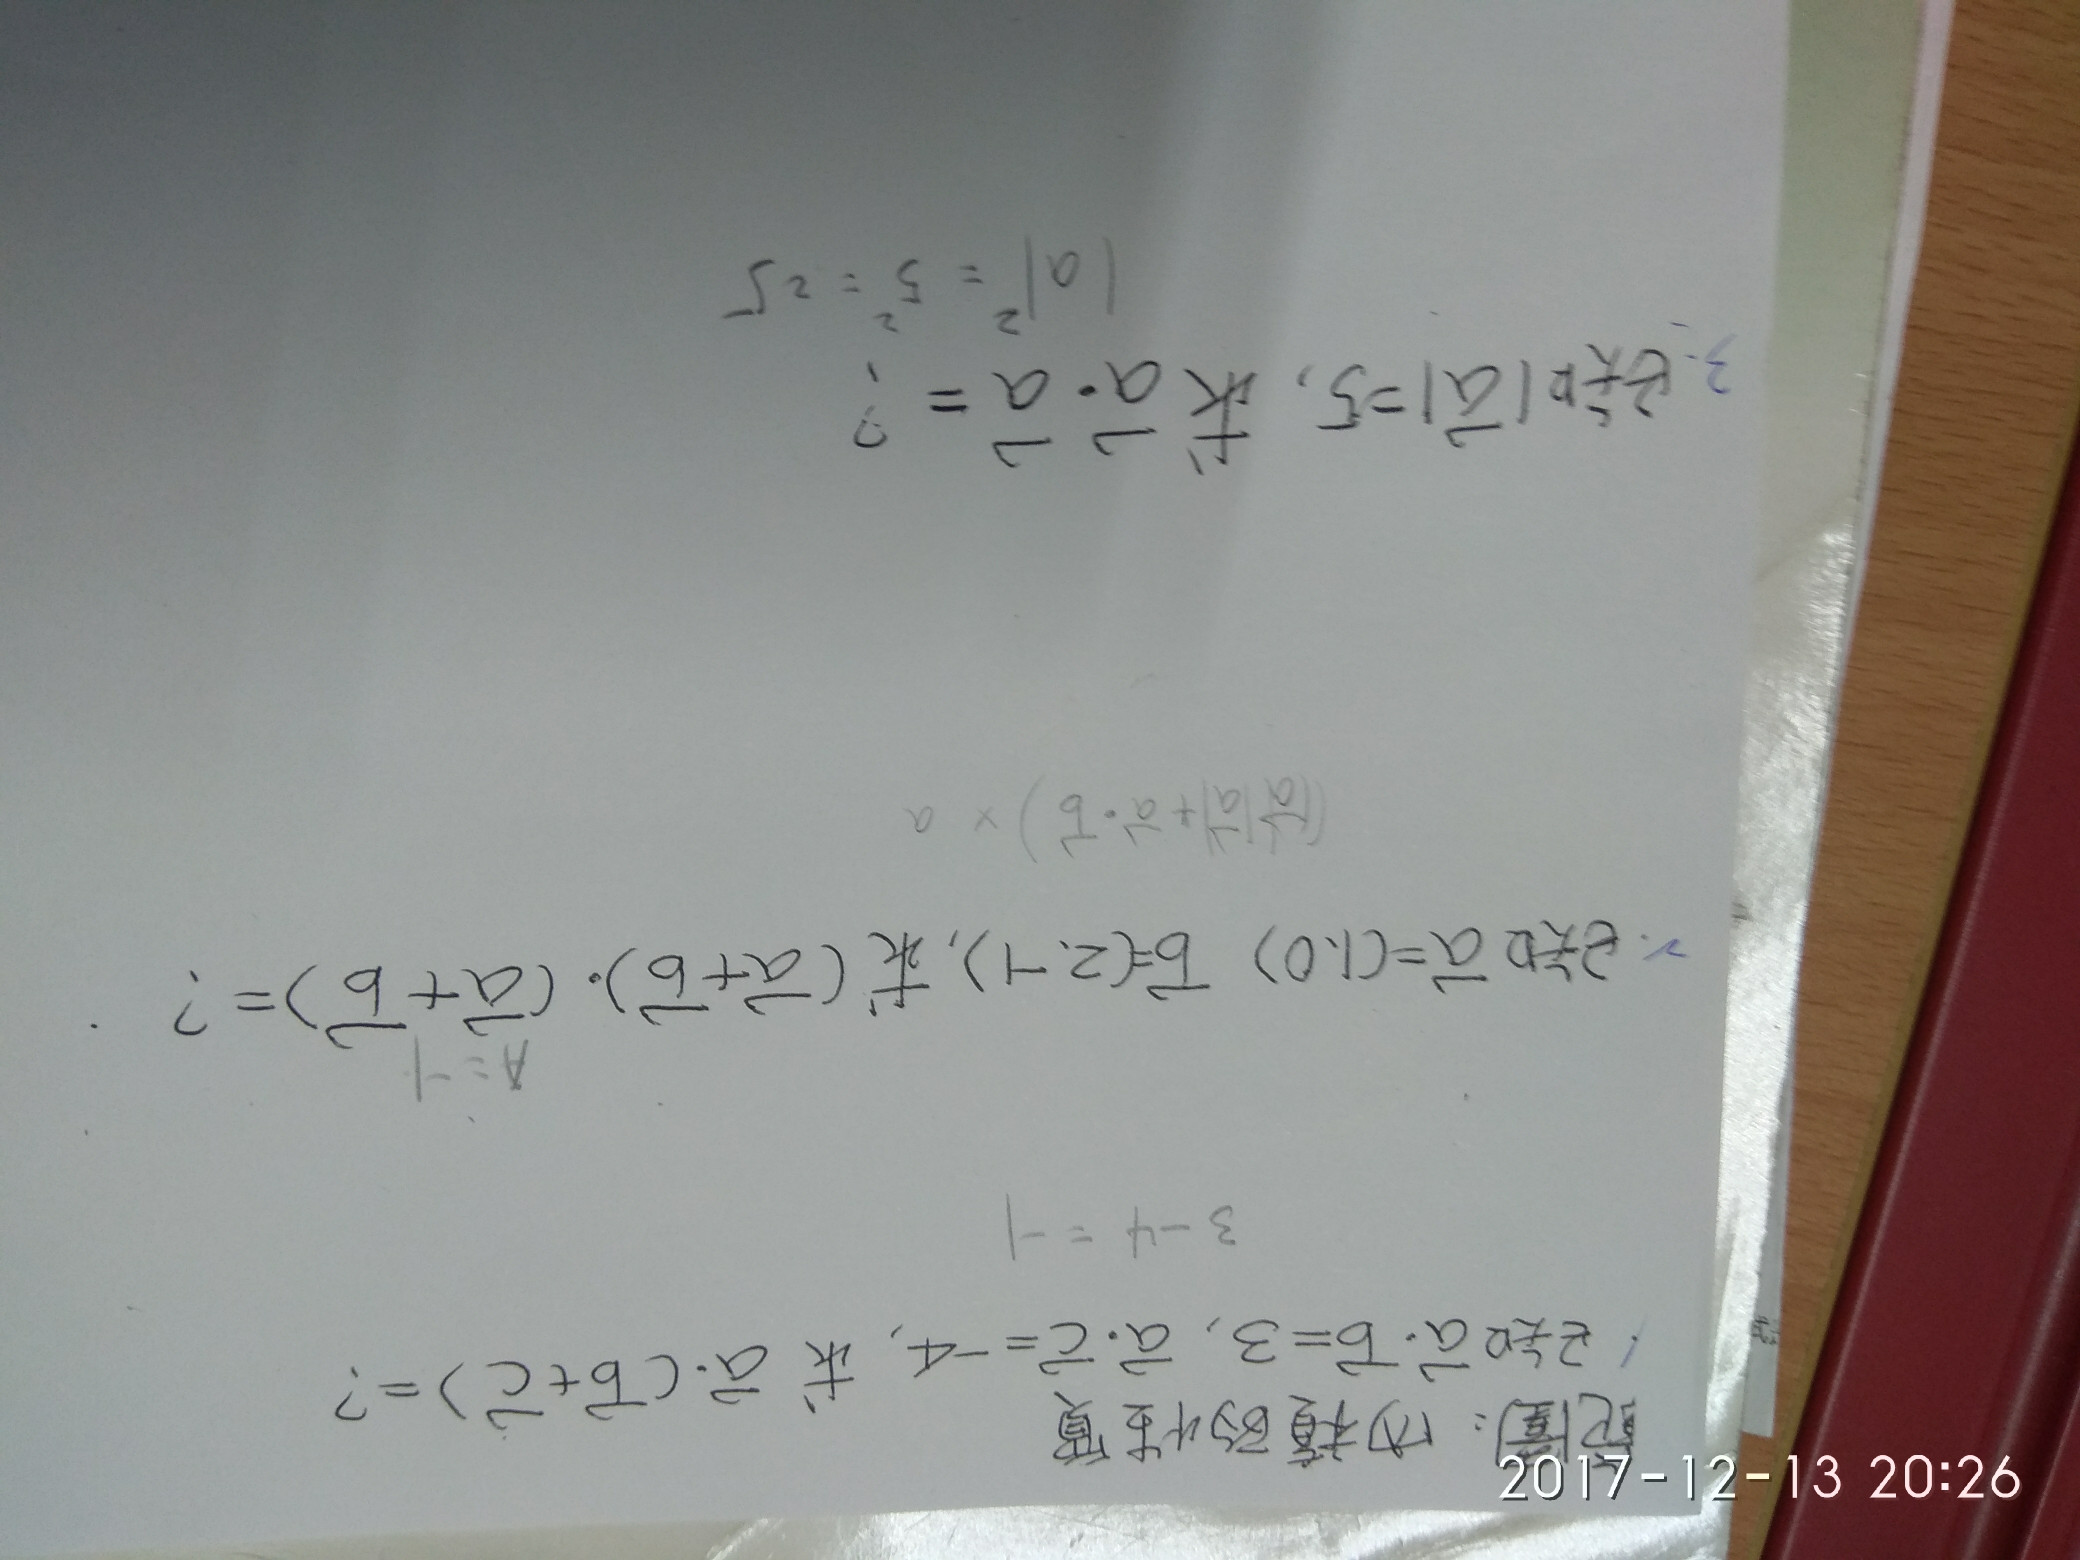 範圍:內積的性質
1. 已知 a⃗·b⃗=3, a⃗·c⃗=-4, 求 a⃗·(b⃗+c⃗)=?
3-4=-1
A=-1
2. 已知 a⃗=(1,0) b⃗=(2,-1), 求 (a⃗+b⃗)·(a⃗+b⃗)=?
(|a⃗||a⃗|+a⃗·b⃗)×a
3. 已知|a⃗|=5, 求 a⃗·a⃗=?
|a|²=5²=25
2017-12-13 20:26